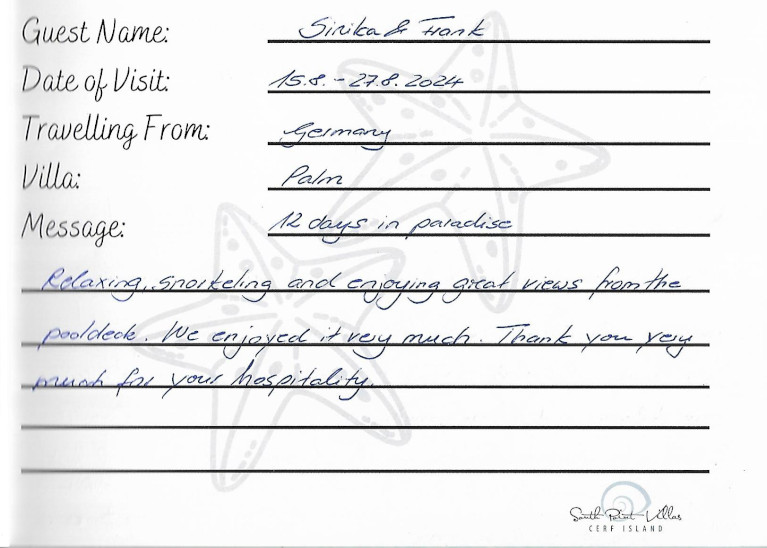 Guest Name: Sirika & Frank
Date of Visit: 15.8. - 27.8.2024
Travelling From: Germany
Villa: Palm
Message: 12 days in paradise
Relaxing, snorkeling and enjoying great views from the
pooldeck. We enjoyed it very much. Thank you very
much for your hospitality.
South Point Villas
CERF ISLAND